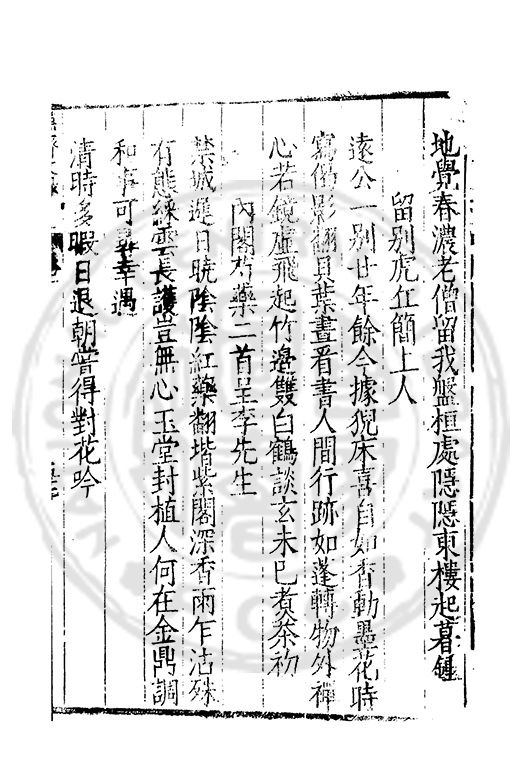 地覺春濃老僧留我盤桓處隱隱東樓起暮鐘
留別虎丘簡上人
遠公一別廿年餘今據猊床喜自如香動墨花時
寫偈影翻貝葉晝看書人間行跡如蓬轉物外禪
心若鏡虛飛起竹邊雙白鶴談玄未已煑茶初
內閣芍藥二首呈李先生
禁城遲日曉陰陰紅藥翻堦紫閣深香雨乍沾殊
有態綵雲長護豈無心玉堂封植人何在金鼎調
和事可尋幸遇
清時多暇日退朝嘗得對花吟